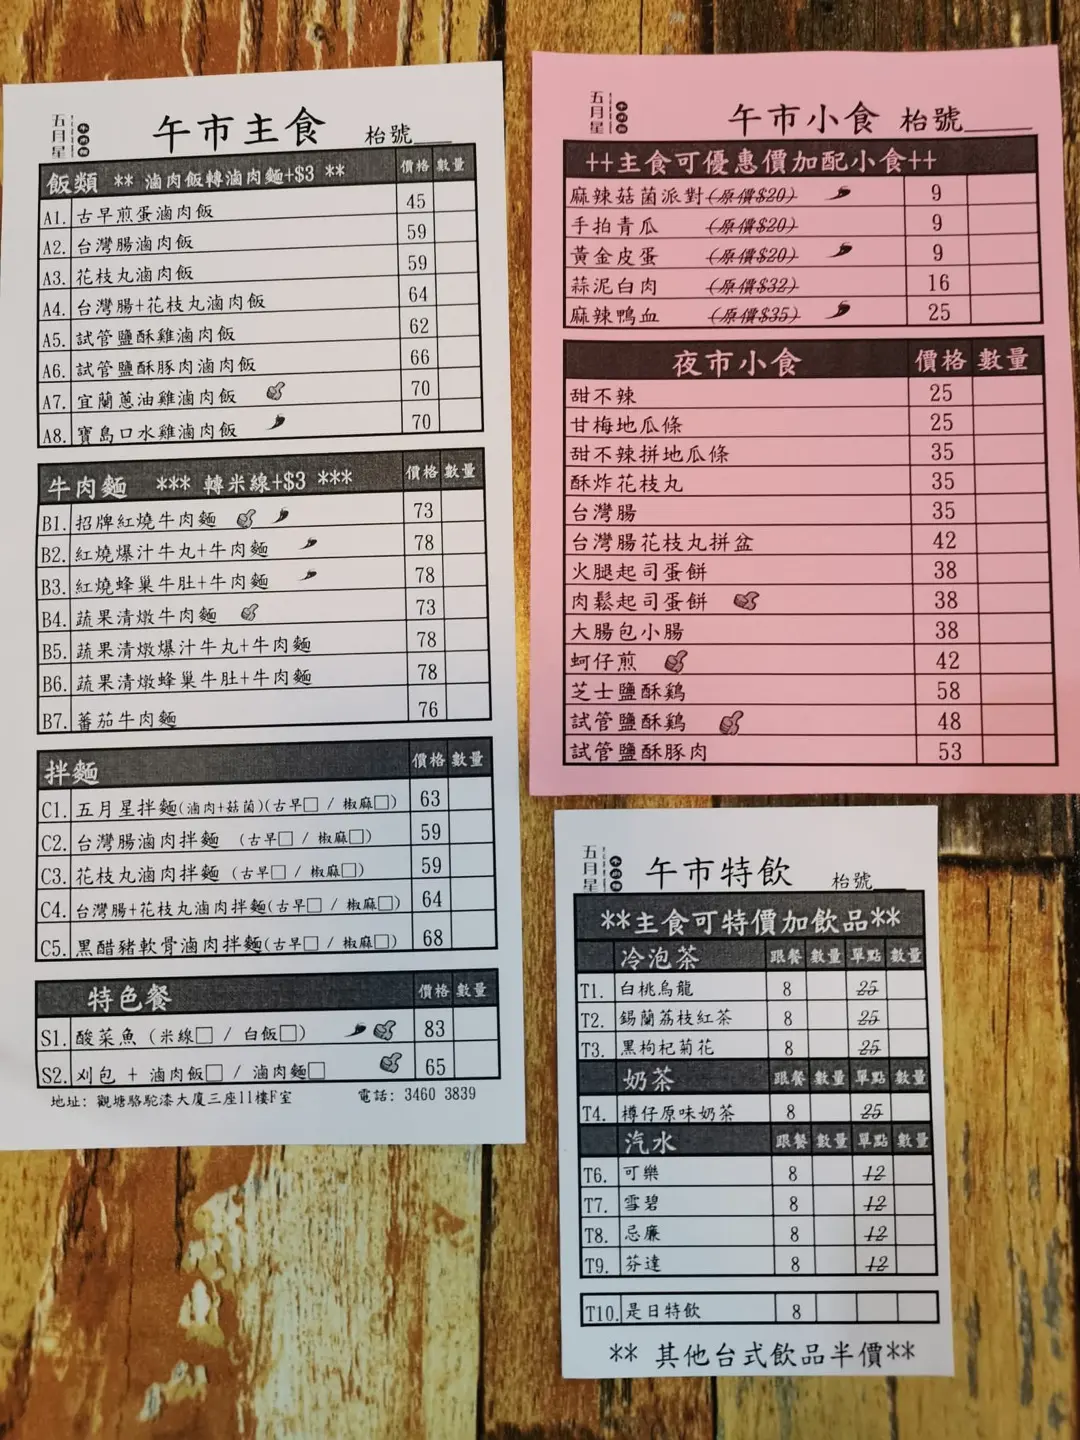 五月星
午市主食 枱號
飯類 ** 滷肉飯轉滷肉麵+$3 ** 價格 數量
A1. 古早煎蛋滷肉飯 45
A2. 台灣腸滷肉飯 59
A3. 花枝丸滷肉飯 59
A4. 台灣腸+花枝丸滷肉飯 64
A5. 試管鹽酥雞滷肉飯 62
A6. 試管鹽酥豚肉滷肉飯 66
A7. 宜蘭蔥油雞滷肉飯 70
A8. 寶島口水雞滷肉飯 70
牛肉麵 *** 轉米線+$3 *** 價格 數量
B1. 招牌紅燒牛肉麵 73
B2. 紅燒爆汁牛丸+牛肉麵 78
B3. 紅燒蜂巢牛肚+牛肉麵 78
B4. 蔬果清燉牛肉麵 73
B5. 蔬果清燉爆汁牛丸+牛肉麵 78
B6. 蔬果清燉蜂巢牛肚+牛肉麵 78
B7. 蕃茄牛肉麵 76
拌麵 價格 數量
C1. 五月星拌麵(滷肉+菇菌)(古早□ / 椒麻□) 63
C2. 台灣腸滷肉拌麵 (古早□ / 椒麻□) 59
C3. 花枝丸滷肉拌麵 (古早□ / 椒麻□) 59
C4. 台灣腸+花枝丸滷肉拌麵(古早□ / 椒麻□) 64
C5. 黑醋豬軟骨滷肉拌麵(古早□ / 椒麻□) 68
特色餐 價格 數量
S1. 酸菜魚 (米線□ / 白飯□) 83
S2. 刈包 + 滷肉飯□ / 滷肉麵□ 65
地址: 觀塘駱駝漆大廈三座11樓F室 電話: 3460 3839
五月星
午市小食 枱號
++主食可優惠價加配小食++
麻辣菇菌派對(原價$20) 9
手拍青瓜 (原價$20) 9
黃金皮蛋 (原價$20) 9
蒜泥白肉 (原價$32) 16
麻辣鴨血 (原價$35) 25
夜市小食 價格 數量
甜不辣 25
甘梅地瓜條 25
甜不辣拼地瓜條 35
酥炸花枝丸 35
台灣腸 35
台灣腸花枝丸拼盆 42
火腿起司蛋餅 38
肉鬆起司蛋餅 38
大腸包小腸 38
蚵仔煎 42
芝士鹽酥鷄 58
試管鹽酥鷄 48
試管鹽酥豚肉 53
五月星
午市特飲 枱號
**主食可特價加飲品**
冷泡茶 跟餐 數量 單點 數量
T1. 白桃烏龍 8 25
T2. 錫蘭荔枝紅茶 8 25
T3. 黑枸杞菊花 8 25
奶茶 跟餐 數量 單點 數量
T4. 樽仔原味奶茶 8 25
汽水 跟餐 數量 單點 數量
T6. 可樂 8 12
T7. 雪碧 8 12
T8. 忌廉 8 12
T9. 芬達 8 12
T10. 是日特飲 8
** 其他台式飲品半價**